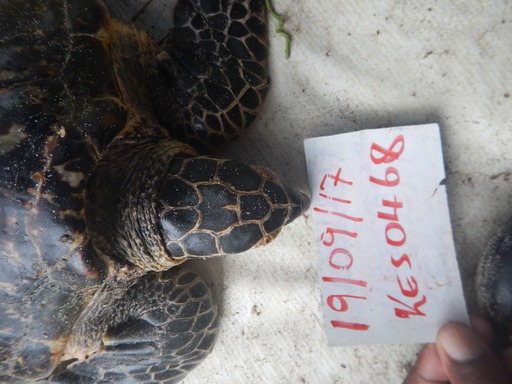 19/09/17
KES0468